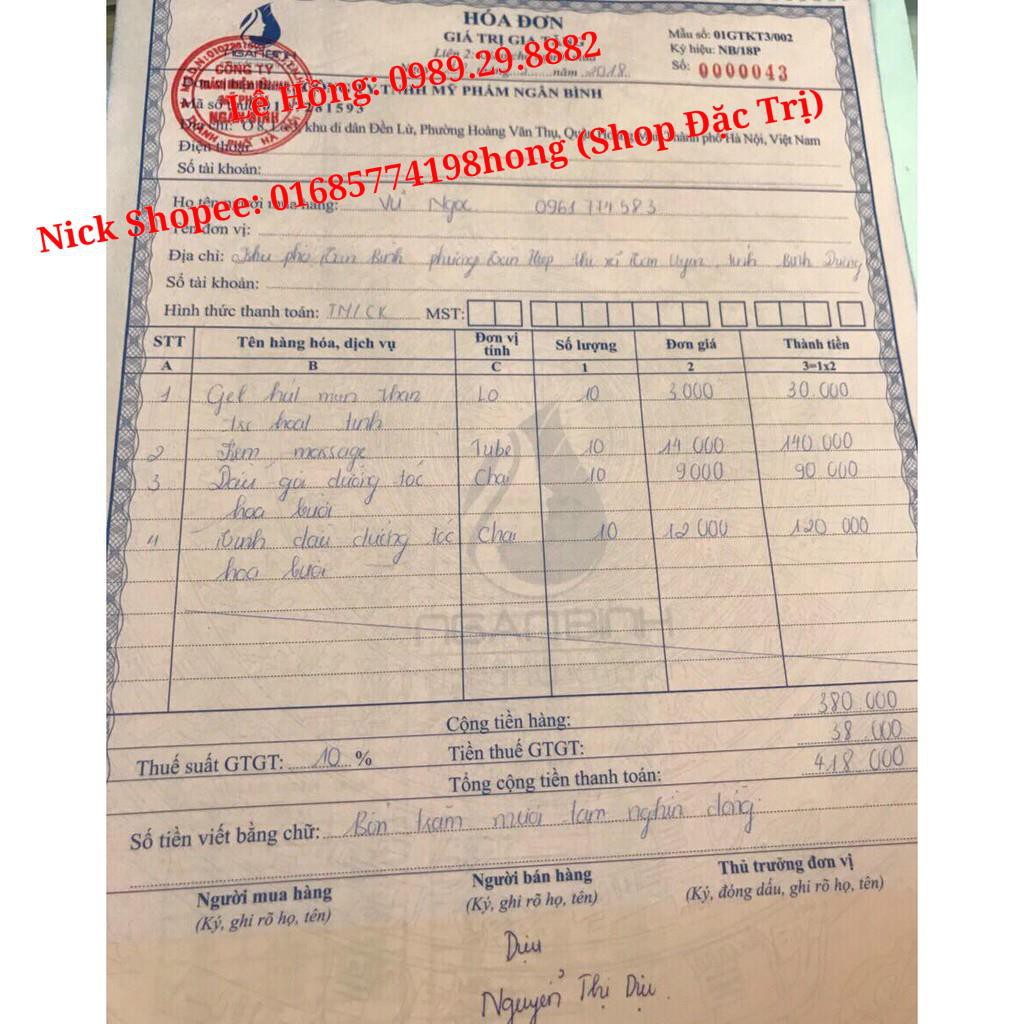 HÓA ĐƠN
GIÁ TRỊ GIA TĂNG
Liên 2:
năm 2018
Mẫu số: 01GTKT3/002
Ký hiệu: NB/18P
Số: 0000043
CÔNG TY
MỸ PHẨM
NGÂN BÌNH
Lê Hồng: 0989.29.8882
MỸ PHẨM NGÂN BÌNH
Mã số
Địa chỉ: khu di dân Đền Lừ, Phường Hoàng Văn Thụ, phố Hà Nội, Việt Nam
Điện thoại
Số tài khoản:
Nick Shopee: 01685774198hong (Shop Đặc Trị)
Họ tên người mua hàng: Vũ Ngọc 0961 774 583
Tên đơn vị:
Địa chỉ: Khu phố Tân Bình phường Tân Hiệp thị xã Tân Uyên, tỉnh Bình Dương
Số tài khoản:
Hình thức thanh toán: TM/CK MST:
STT Tên hàng hóa, dịch vụ Đơn vị tính Số lượng Đơn giá Thành tiền
A B C 1 2 3=1x2
1 Gel hút mụn than Lọ 10 3.000 30.000
hoạt tính
2 Kem massage Tube 10 14 000 140.000
3 Dầu gội dưỡng tóc Chai 10 9000 90 000
hoa bưởi
4 Tinh dầu dưỡng tóc Chai 10 12 000 120 000
hoa bưởi
NGANBINH
Cộng tiền hàng: 380 000
Thuế suất GTGT: 10 % Tiền thuế GTGT: 38 000
Tổng cộng tiền thanh toán: 418 000
Số tiền viết bằng chữ: Bốn trăm mười tám nghìn đồng
Người mua hàng Người bán hàng Thủ trưởng đơn vị
(Ký, ghi rõ họ, tên) (Ký, ghi rõ họ, tên) (Ký, đóng dấu, ghi rõ họ, tên)
Dịu
Nguyễn Thị Dịu